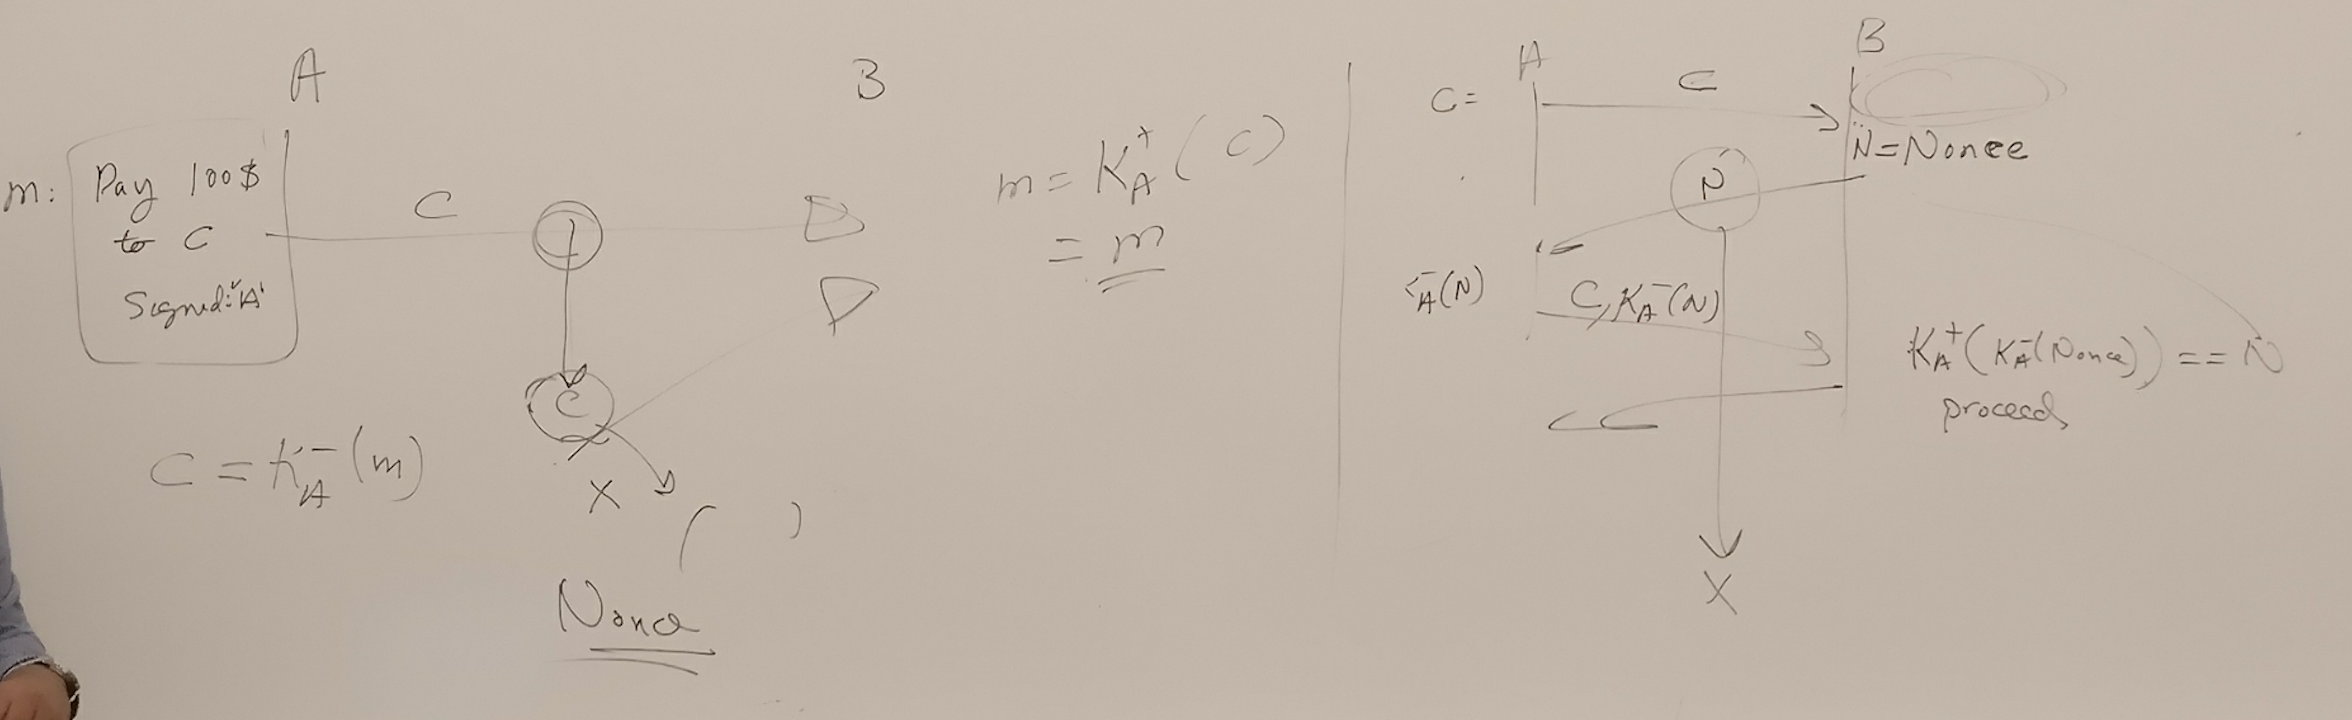 A
B
m:
Pay 100$
to C
Signed: 'A'
C
C
C = K_A^-(m)
X
( )
Nonce
m = K_A^+(C)
= m
A
B
C =
C
N = Nonce
N
K_A^-(N)
C, K_A^-(N)
K_A^+(K_A^-(Nonce)) == N
proceed
X